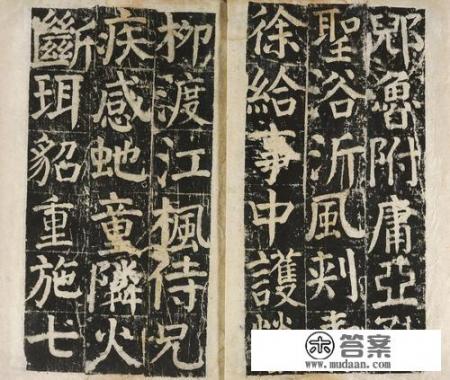 郳魯附庸亞
聖浴沂風
徐給事中護
柳渡江楓侍兄
疾感虵童隣火
斷珥貂重施七
答案
www.mudaan.com